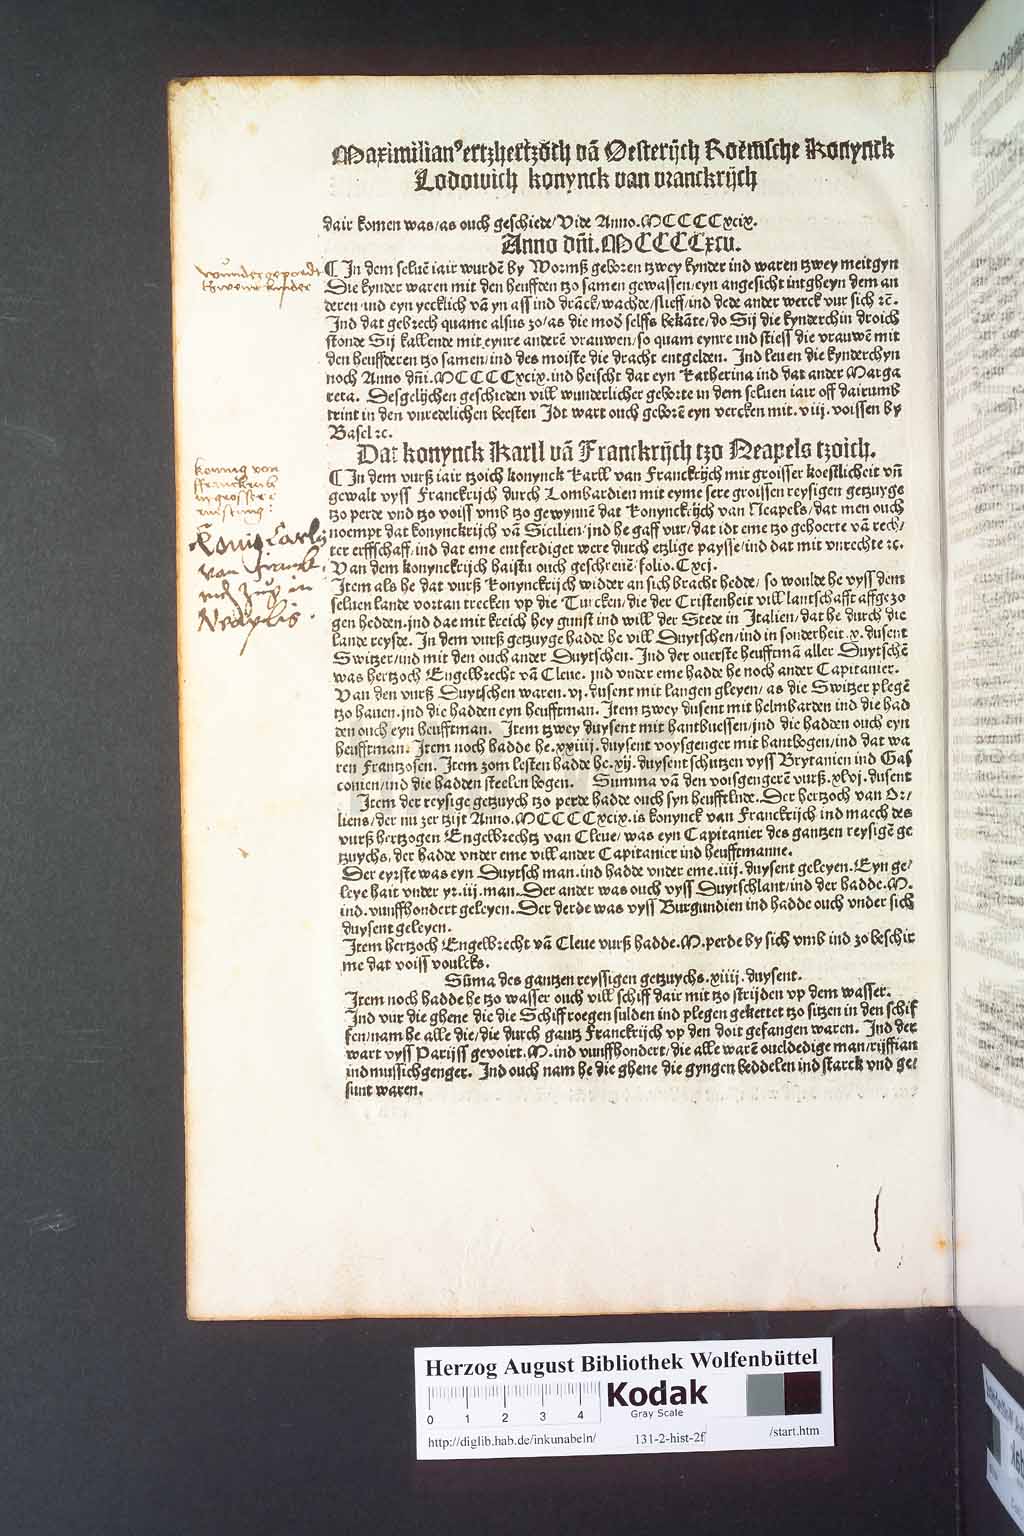 Maximilian⁹ ertzhertzoch vã Oesterijch Roemsche Konynck
Lodowich konynck van vranckrijch
dair komen was/as ouch geschiede/Vide Anno.MCCCCxcix.
Anno dñi.MCCCCxcv.
¶ In dem seluē iair wurdē by Wormß geboren tzwey kynder ind waren tzwey meitgyn
Die kynder waren mit den heufften tzo samen gewassen/eyn angesicht intgheyn dem an
deren·ind eyn yecklich vā yn ass ind dranck/wachde/slieff/ind dede ander werck vur sich ꝛc̄.
Ind dat gebrech quame alsus zo/as die mod selffs bekāte/do Sij die kynderchin droich
stonde Sij kallende mit eynre anderē vrauwen/so quam eynre ind stiess die vrauwē mit
den heuffderen tzo samen/ind des moiste die dracht entgelden. Ind leuen die kynderchyn
noch Anno dñi.MCCCCxcix.ind heischt dat eyn Katherina ind dat ander Marga
reta. Desgelijchen geschieden vill wunderlicher geborte in dem seluen iair off dairumb
trint in den vnredelichen beesten Idt wart ouch geborē eyn vercken mit.viij.voissen by
Basel ꝛc.
Dat konynck Karll vā Franckrijch tzo Neapels tzoich.
¶ In dem vurß iair tzoich konynck Karll van Franckrijch mit groisser koestlicheit vñ
gewalt vyss Franckrijch durch Lombardien mit eyme sere groissen reysigen getzuyge
tzo perde vnd tzo voiss vmb tzo gewynnē dat Konynckrijch van Neapels/dat men ouch
noempt dat konynckrijch vā Sicilien/jnd he gaff vur/dat idt eme tzo gehoerte vā rech/
ter erffschaff/ind dat eme entferdiget were durch etzlige paysse/ind dat mit vnrechte ꝛc.
Van dem konynckrijch haistu ouch geschreuē/folio.Cxcj.
Item als he dat vurß Konynckrijch widder an sich bracht hedde/ so woulde he vyss dem
seluen lande vortan trecken vp die Turcken/die der Cristenheit vill lantschafft affgezo
gen hedden.jnd dae mit kreich hey gunst ind will der Stede in Italien/dat he durch die
lande reysde. In dem vurß getzuyge hadde he vill Duytschen/ind in sonderheit.x.dusent
Switzer/ind mit den ouch ander Duytschen. Ind der ouerste heufftmā aller Duytschē
was hertzoch Engelbrecht vā Cleue. jnd vnder eme hadde he noch ander Capitanier.
Van den vurß Duytschen waren.vj.dusent mit langen gleyen/as die Switzer plegē
tzo hauen.jnd die hadden eyn heufftman. Item tzwey dusent mit helmbarden ind die had
den ouch eyn heufftman. Item tzwey duysent mit hantbuessen/jnd die hadden ouch eyn
heufftman. Item noch hadde he.xxiiij.duysent voysgenger mit hantbogen/ind dat wa
ren Frantzosen. Item zom lesten hadde he.xij.duysent schutzen vyss Brytanien ind Gas
conien/ind die hadden steelen bogen. Summa vā den voisgengerē vurß.xlvj.dusent
Item der reysige getzuych tzo perde hadde ouch syn heufftlude.Der hertzoch van Or/
liens/der nu zer tzijt Anno.MCCCCxcix.is konynck van Franckrijch ind maech des
vurß hertzogen Engelbrechtz van Cleue/was eyn Capitanier des gantzen reysigē ge
tzuychs, der hadde vnder eme vill ander Capitanier ind heufftmanne.
Der eyrste was eyn Duytsch man.ind hadde vnder eme.iiij.duysent geleyen.Eyn ge/
leye hait vnder yr.iij.man.Der ander was ouch vyss Duytschlant/ind der hadde.M.
ind.vunffhondert geleyen.Der derde was vyss Burgundien ind hadde ouch vnder sich
duysent geleyen.
Item hertzoch Engelbrecht vā Cleue vurß hadde.M.perde by sich vmb ind zo beschir
me dat voiss voulcks.
Sūma des gantzen reyssigen getzuychs.xiiij.duysent.
Item noch hadde he tzo wasser ouch vill schiff dair mit tzo strijden vp dem wasser.
Ind vur die ghene die die Schiff roegen sulden ind plegen gekettet tzo sitzen in den schif
fen/nam he alle die/die durch gantz Franckrijch vp den doit gefangen waren. Ind der
wart vyss Parijss gevoirt.M.ind vunffhondert/die alle warē oueldedige man/rijffian
ind mussichgenger. Ind ouch nam he die ghene die gyngen beddelen ind starck vnd ge/
sunt waren.
wunder gepordt
tzweier kinder
konnig von
ffranckrich
in grosser
rustung:
Konig Carly
von Franck,
rich Zug in
Neaplis.
Herzog August Bibliothek Wolfenbüttel
0 1 2 3 4
Kodak
Gray Scale
http://diglib.hab.de/inkunabeln/ 131-2-hist-2f /start.htm